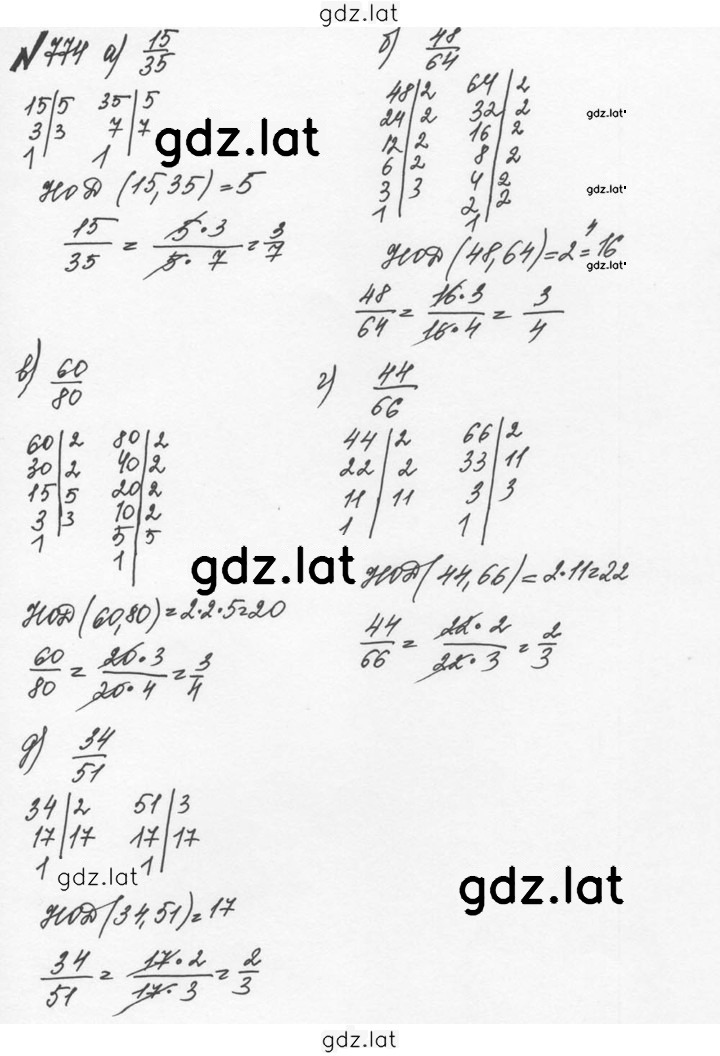 gdz.lat
№774 а) 15/35
15|5 35|5
3|3 7|7
1 1
gdz.lat
НОД (15,35) = 5
15/35 = 5·3/5·7 = 3/7
б) 48/64
48|2 64|2
24|2 32|2
12|2 16|2
6|2 8|2
3|3 4|2
1 2|2
1
gdz.lat
gdz.lat
НОД (48,64) = 2⁴ = 16
gdz.lat
48/64 = 16·3/16·4 = 3/4
в) 60/80
60|2 80|2
30|2 40|2
15|5 20|2
3|3 10|2
1 5|5
1
gdz.lat
НОД (60,80) = 2·2·5 = 20
60/80 = 20·3/20·4 = 3/4
г) 44/66
44|2 66|2
22|2 33|11
11|11 3|3
1 1
НОД (44,66) = 2·11 = 22
44/66 = 22·2/22·3 = 2/3
д) 34/51
34|2 51|3
17|17 17|17
1 1
gdz.lat
НОД (34,51) = 17
34/51 = 17·2/17·3 = 2/3
gdz.lat
gdz.lat